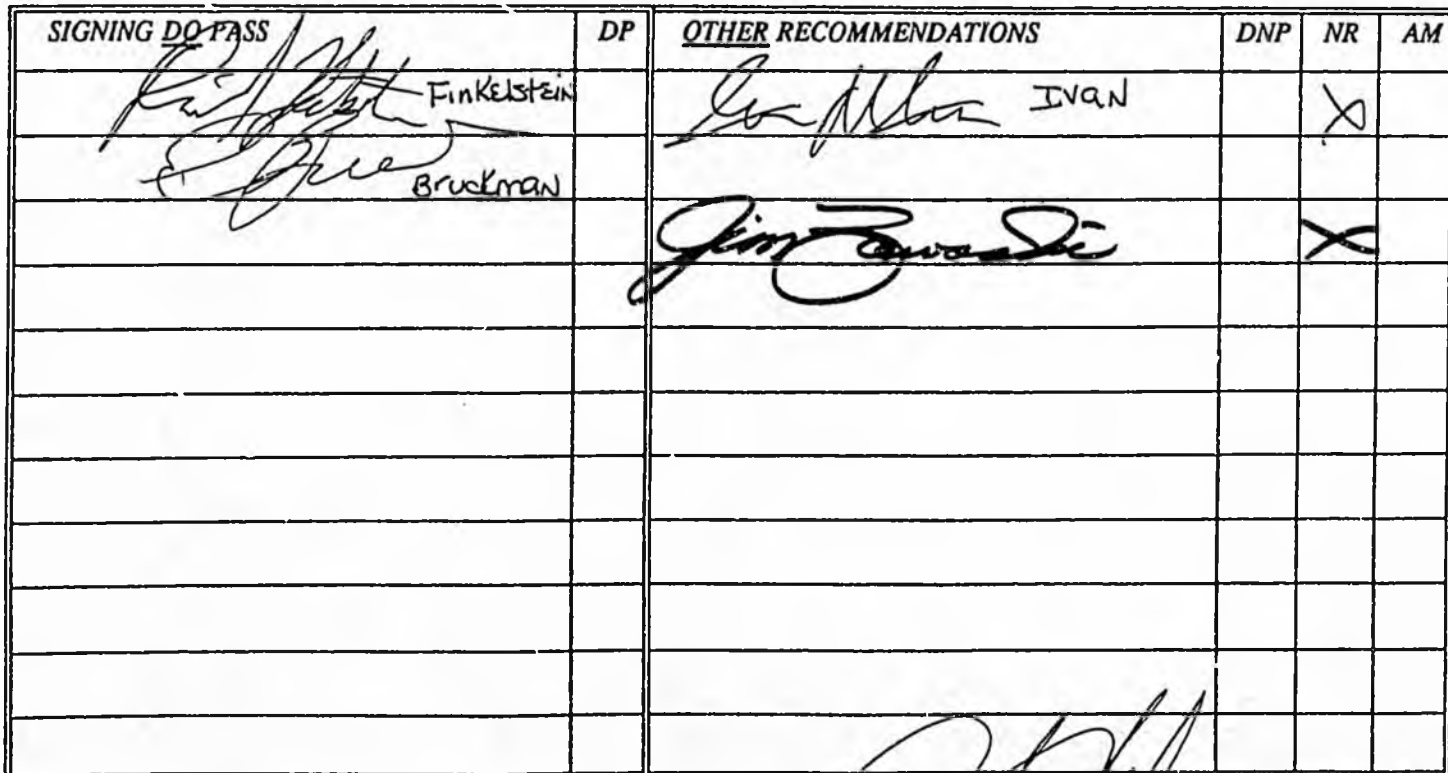 SIGNING DO PASS DP OTHER RECOMMENDATIONS DNP NR AM
Finkelstein Ivan X
Bruckman
Jim Zawacki X